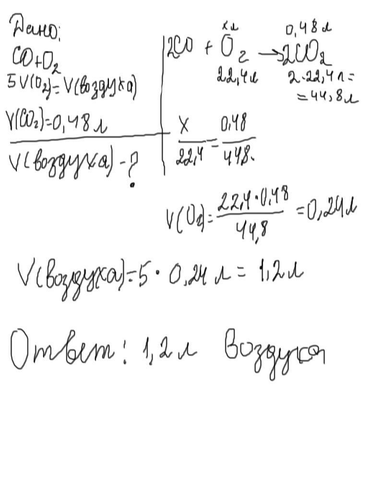 Дано:
CO+O₂
5V(O₂)=V(воздуха)
V(CO₂)=0,48л
V(воздуха)-?
xл 0,48л
2CO + O₂ → 2CO₂
22,4л 2·22,4л=
=44,8л
x/22,4 = 0,48/448.
V(O₂)= 22,4·0,48/44,8 = 0,24л
V(воздуха)=5·0,24л=1,2л
Ответ: 1,2л воздуха